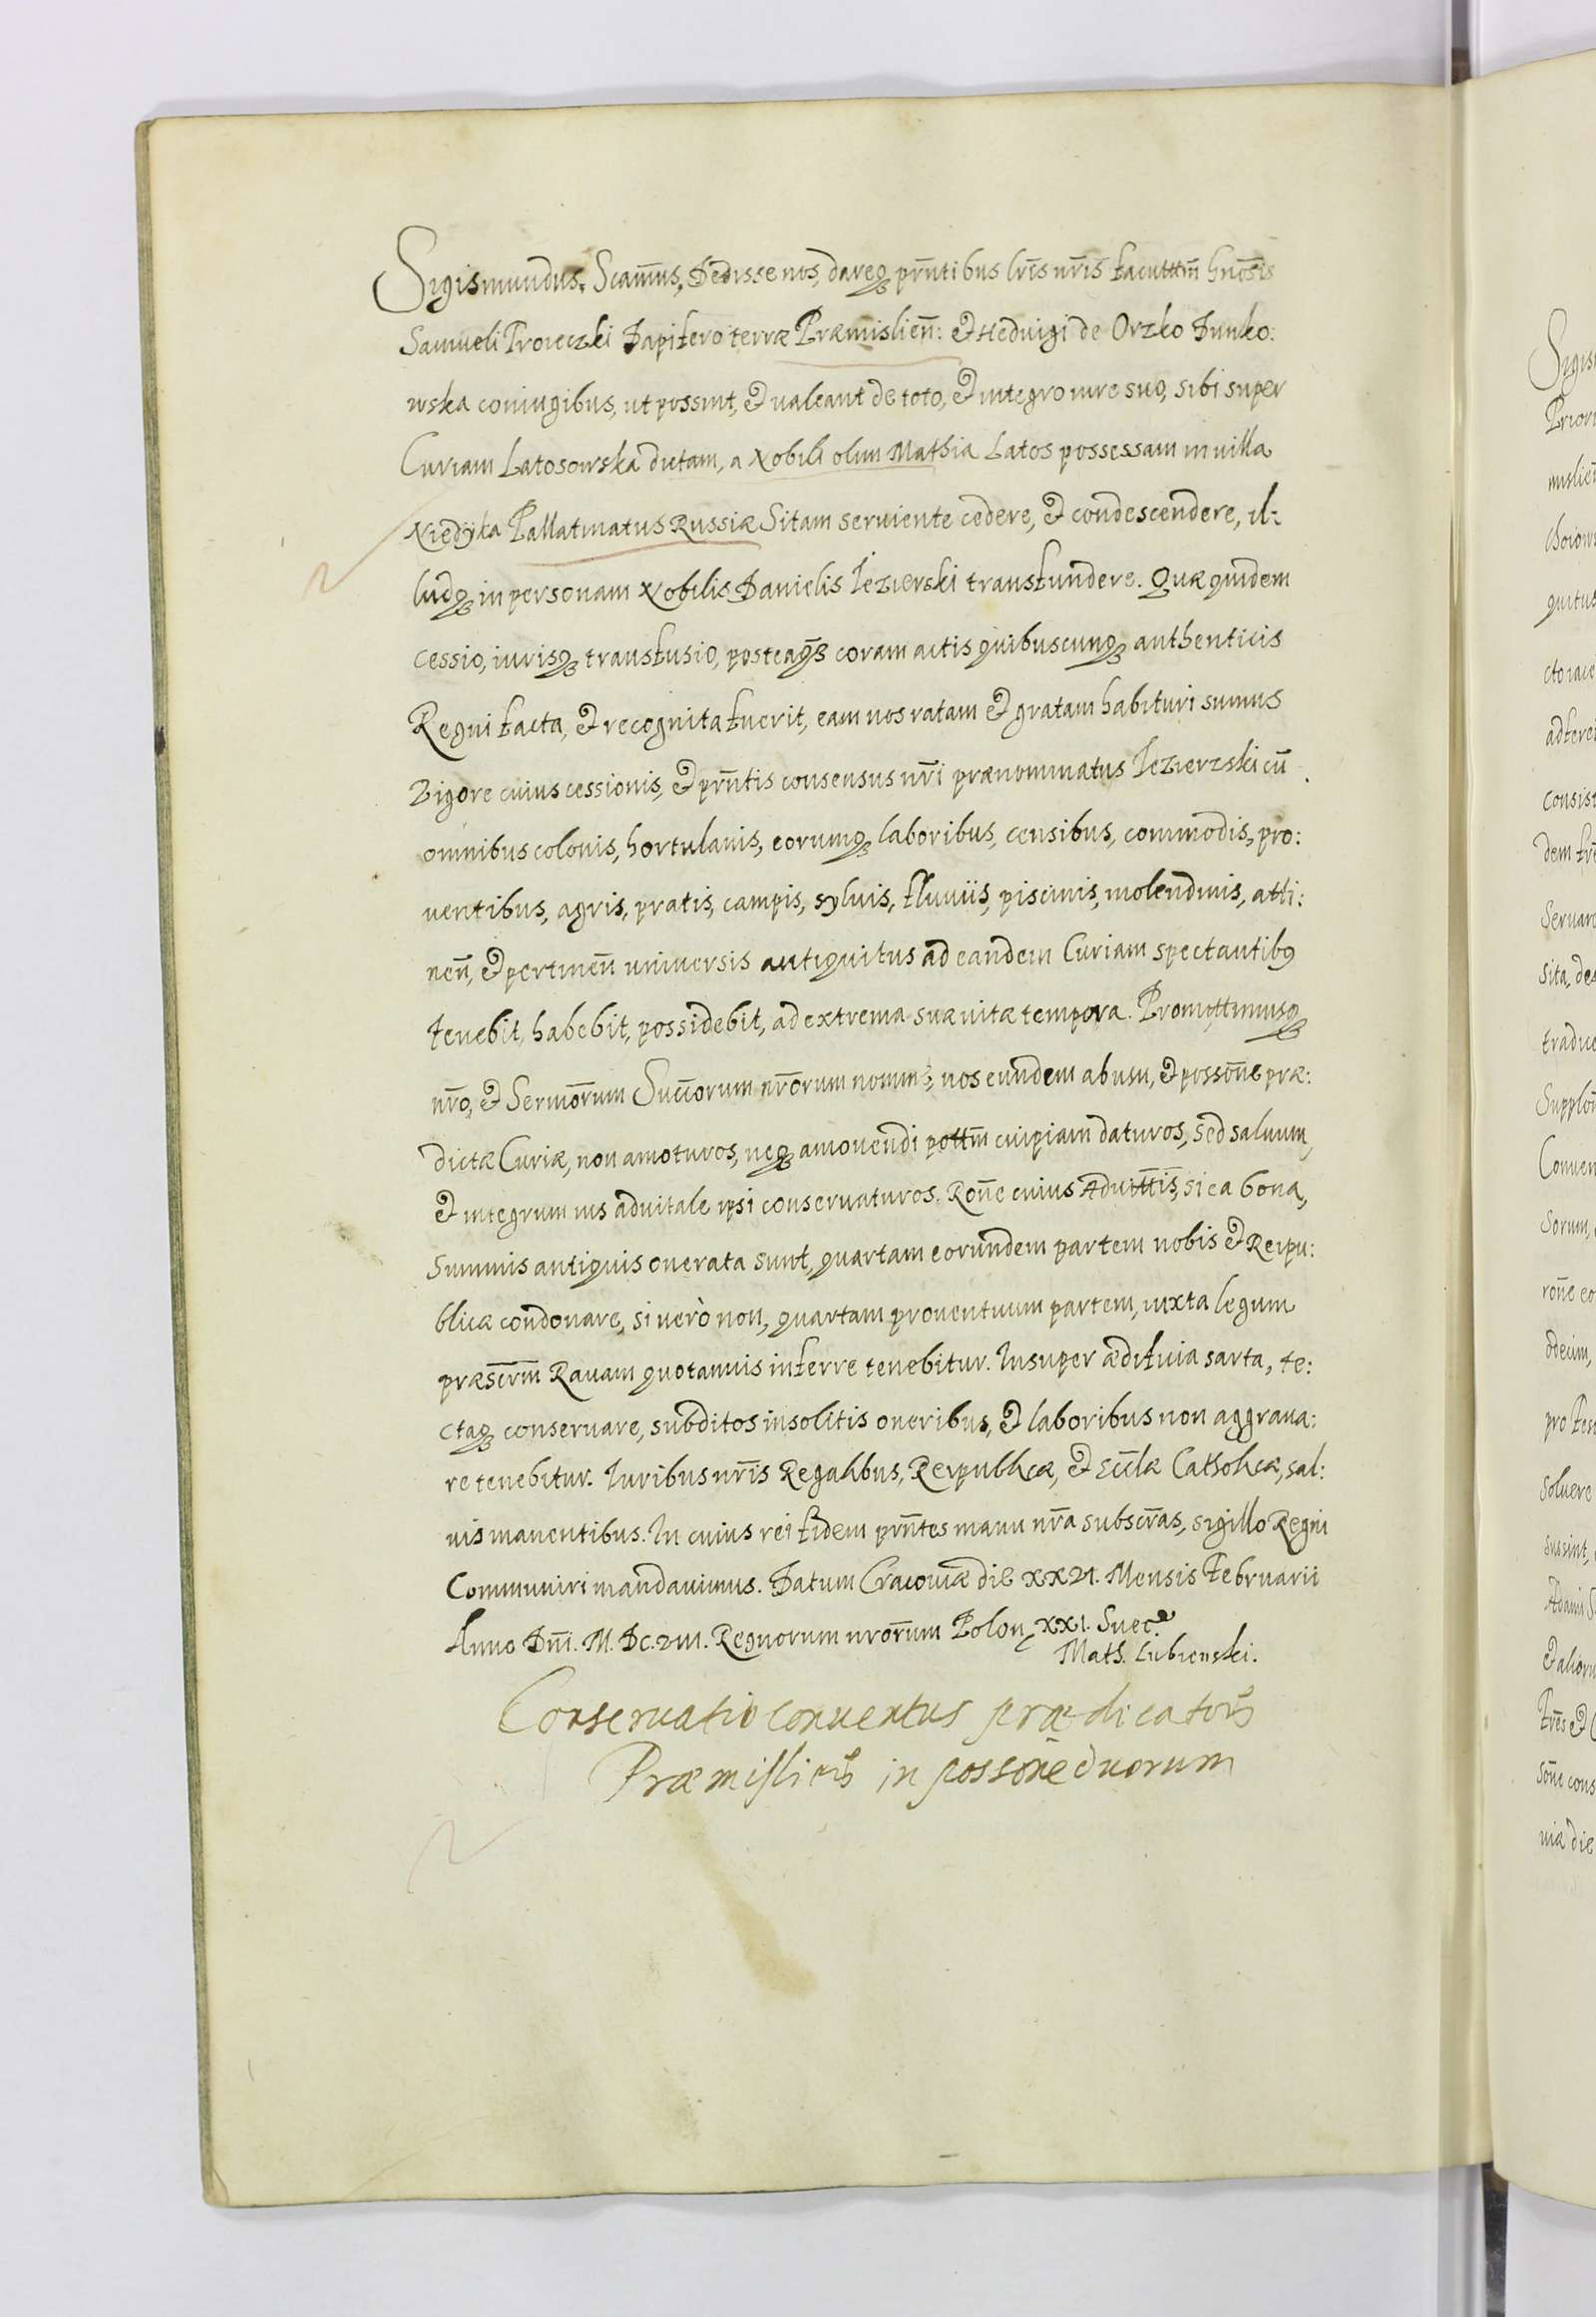 Sigismundus. Scam̃us, Dedisse nos, dareq₃ prñtibus lrĩs nrĩs facultt̃m Gnõsis
Samueli Troieczki Dapifero terræ Præmislieñ: & Heduigi de Orzko Dunko:
wska coniugibus, ut possint, & ualeant de toto, & integro iure suo, sibi super
Curiam Latosowska dictam, a Nobili olim Mathia Latos possessam in uilla
Niedÿka Pallatinatus Russiæ Sitam seruiente cedere, & condescendere, il:
ludq₃ in personam Nobilis Danielis Iezierski transfundere. Quæ quidem
cessio, iurisq₃ transfusio, posteaq̃₃ coram actis quibuscunq₃ authenticis
Regni facta, & recognita fuerit, eam nos ratam & gratam habituri sumus
Vigore cuius cessionis, & prñtis consensus nrĩ prænominatus Iezierzski cũ
omnibus colonis, hortulanis, eorumq₃ laboribus, censibus, commodis, pro:
uentibus, agris, pratis, campis, syluis, fluuiis, piscinis, molendinis, atti:
neñ, & pertineñ uniuersis antiquitus ad eandem Curiam spectantibq
tenebit, habebit, possidebit, ad extrema suæ uitæ tempora. Promittimusq₃
nrõ, & Sermõrum Succ̃orum nrõrum nomine, nos eundem ab usu, & possõne præ:
dictæ Curiæ, non amoturos, neq₃ amouendi pottm̃ cuipiam daturos, sed saluum,
& integrum ius aduitale ipsi conseruaturos. Roñe cuius Aduittĩs, si ea bona,
Summis antiquis onerata sunt, quartam eorundem partem nobis & Reipu:
blicæ condonare, si uerò non, quartam prouentuum partem, iuxta legum
præscrm̃ Rauam quotannis inferre tenebitur. Insuper ædificia sarta, te:
ctaq₃ conseruare, subditos insolitis oneribus, & laboribus non aggraua:
re tenebitur. Iuribus nrĩs Regalibus, Reipublicæ, & Eccl̃æ Catholicæ, sal:
uis manentibus. In cuius rei fidem prñtes manu nrã subscrãs, sigillo Regni
Communiri mandauimus. Datum Cracouiæ die XXVI. Mensis Februarii
Anno Dnĩ. M. DC. VIII. Regnorum nrõrum Polon, XXI. Suec.
Math. Lubienski.
Conseruatio conuentus prædicator
Præmislien in possone duorum